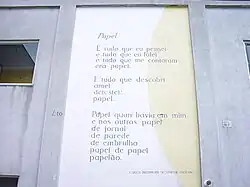 Papel
E tudo que eu pensei
e tudo que eu falei
e tudo que me contaram
era papel.
E tudo que descobri
amei
detestei:
papel.
Papel quanto havia em mim
e nos outros, papel
de jornal
de parede
de embrulho
papel de papel
papelão.